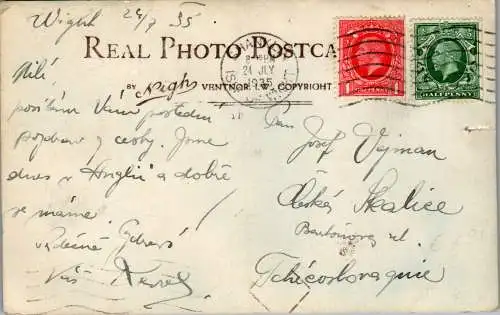 Wight 24/7 35
REAL PHOTO POSTCA
BY Nigh VENTNOR. I.W. COPYRIGHT
SHANKLIN
24 JLY
1935
1 1
HALFPENNY
Milí
posílám Vám poslední
pozdrav z cesty. Jsme
dnes v Anglii a dobře
se máme.
Váš
Pan Josef Vejman
Česká Skalice
Bartoňova ul.
Tchécoslovaquie